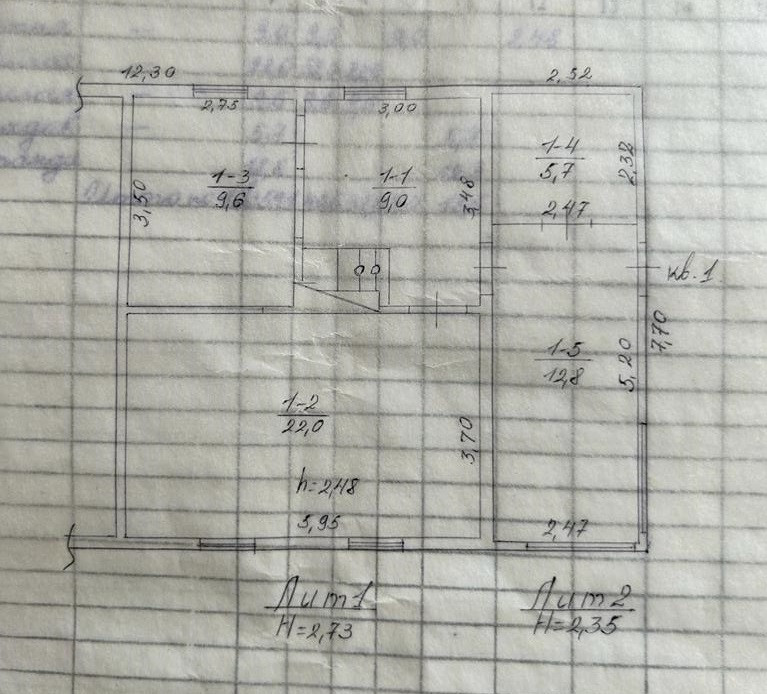 12,30
2,52
2,75
3,00
1-4
5,7
2,32
1-3
9,6
1-1
9,0
3,50
3,48
2,47
кв. 1
7,70
1-5
12,8
5,20
1-2
22,0
3,70
h=2,48
5,95
2,47
Лит 1
H=2,73
Лит 2
H=2,35